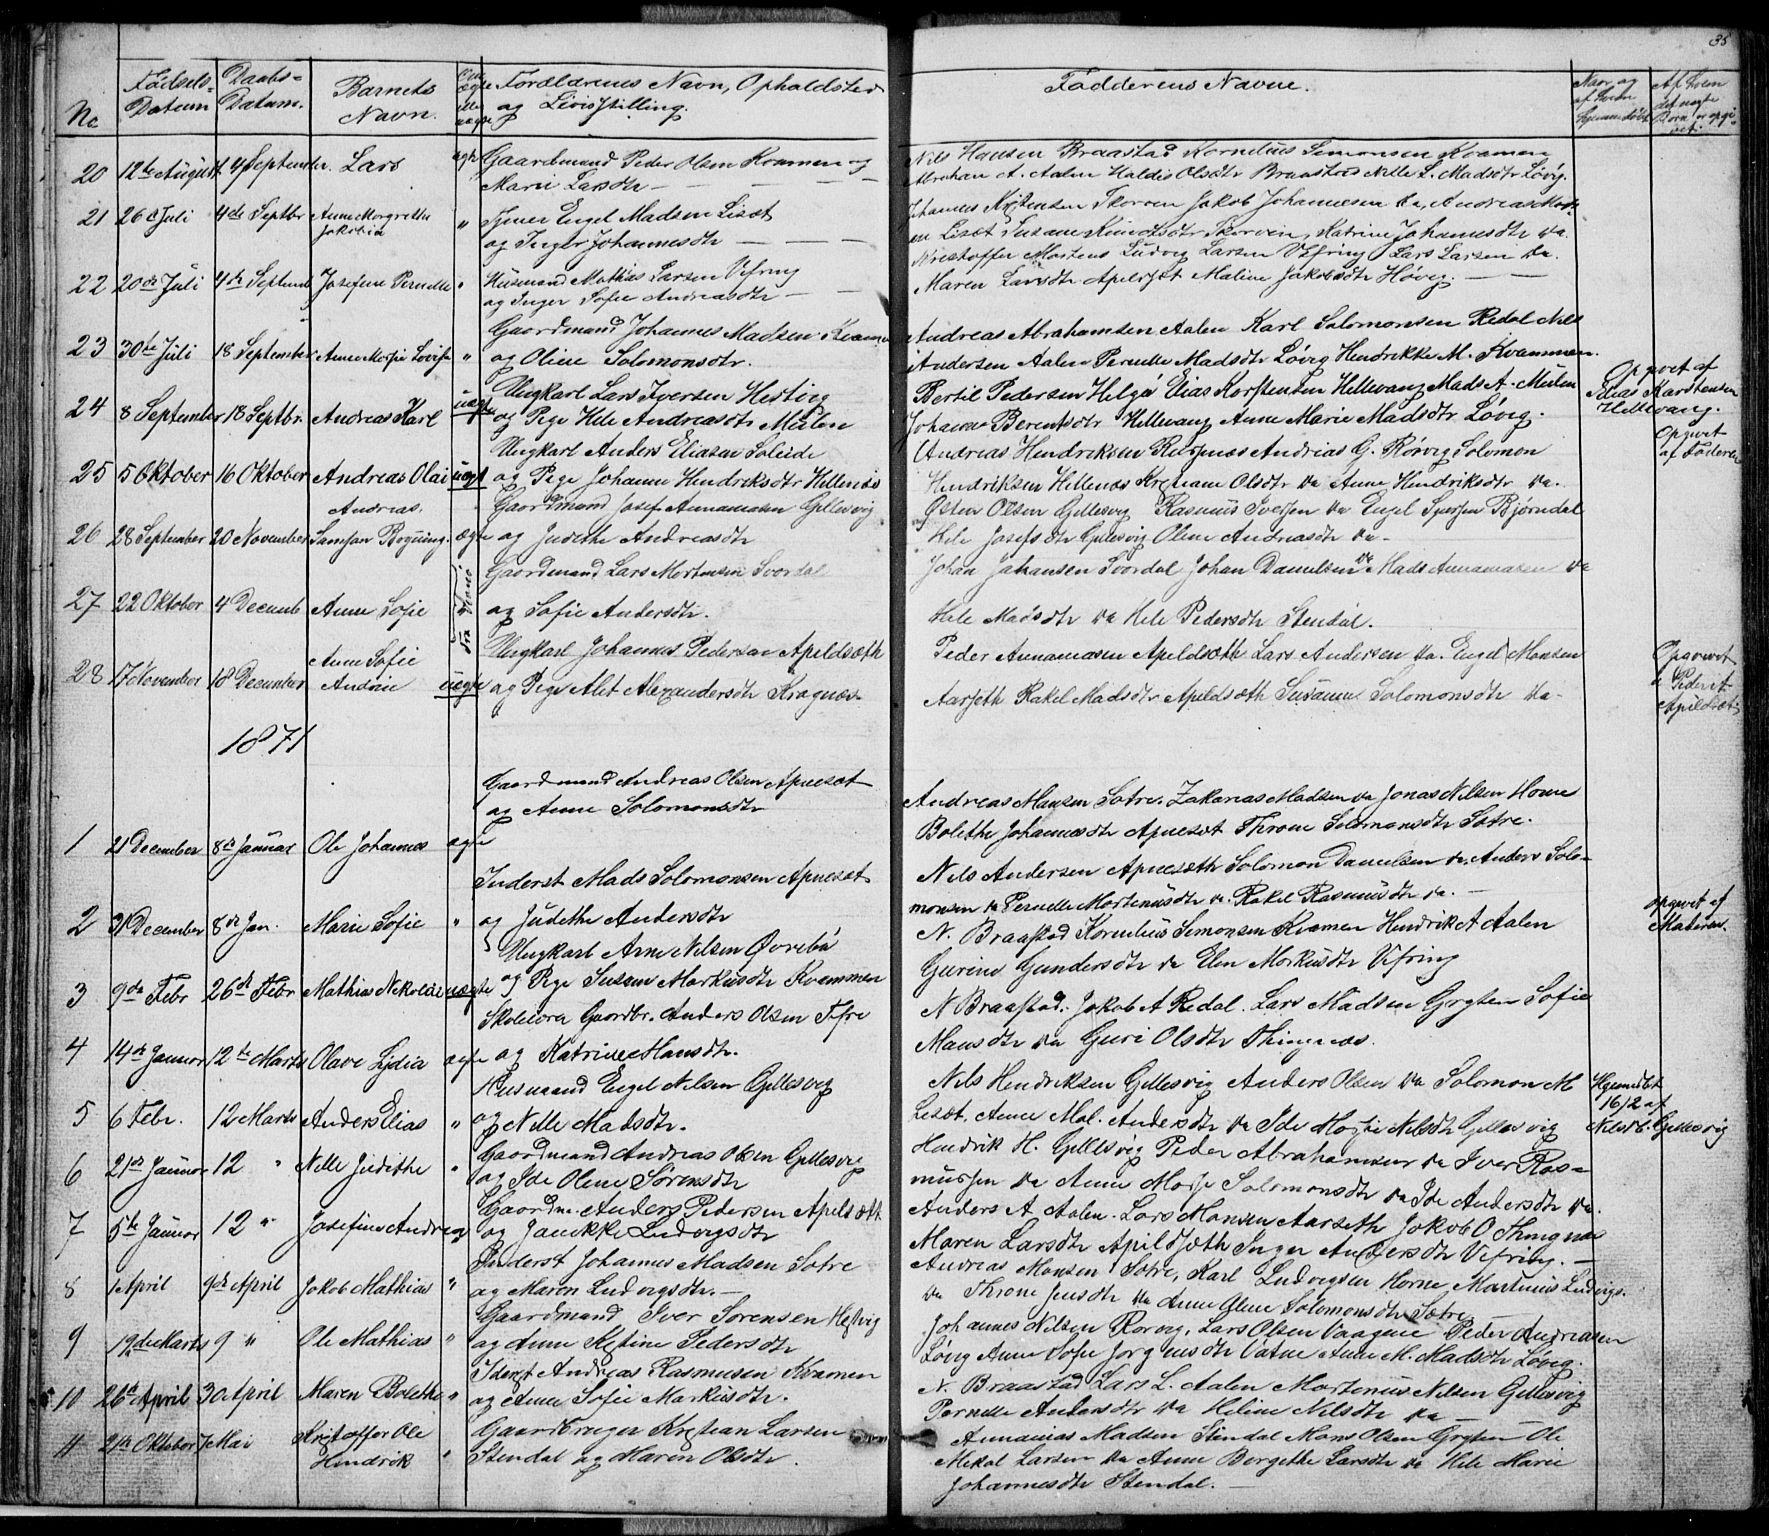 35
No
Fødsels-
Datum
Daabs-
Datum.
Barnets
Navn.
Forældrenes Navn, Opholdsted
og Livisstilling.
Fødderens Navne.
Naar og
af hvem
hjemmedøbt
Af hvem
det uægte
Børn er opgi-
vet.
20 12te August 4 September. Lars ægte Gaardmand Peder Olsen Kvammen og
Marie Larsdtr
Nils Hansen Braastad Kornelius Simonsen Kvamen
Abraham A. Aalen Haldis Olsdtr Braastad Nille L. Madsdtr Løvig.
21 26de Juli 4de Septbr Anne Margrethe
Jakobia " Tjener Engel Madsen Lisæt
og Inger Johannesdtr
Johannes Kristensen Skorven Jakob Johannesen da, Andreas Mad-
sen Lisæt Susane Knudsdtr Skorven, Katrine Johannesdtr da.
22 20de Juli 4de Septemb Josefine Pernelle " Husmand Mathias Larsen Vefring
og Inger Sofie Andreasdtr
Kristoffer Mortens Ludvig Larsen Vefring Lars Larsen da.
Maren Larsdtr Apeldsæt Maline Jakobsdtr Høvig.
23 30te Juli 18 September Anne Marie Lovise " Gaardmand Johannes Madsen Kvamen
og Oline Solomonsdtr.
Andreas Abrahamsen Aalen Karl Solomonsen Redal Nils
Andersen Aalen Pernelle Madsdtr Løvig Hendrikke M. Kvammen.
24 8 September 18 Septbr. Andreas Karl uægte Ungkarl Lars Iversen Hestvig
og Pige Hele Andreasdtr Mulen
Bertil Pedersen Helga Elias Korstensen Hellevang Mads A. Mulen
Johanne Berentsdtr Hellevang Anne Marie Madsdtr Løvig.
Opgivet af
Elias Karstensen
Hellevang.
25 5 Oktober 16 Oktober Andreas Olai uægt Ungkarl Anders Eliasen Soleide
og Pige Johanne Hendriksdtr Hellenæs
Andreas Hendriksen Rusnæs Andrias G. Rørvig Solomon
Hendriksen Hellenæs Kristiane Olsdtr da Anne Hendriksdtr da.
Opgivet
af Faderen
26 28 September 20 November Andreas
Samson ægte Gaardmand Josef Annanias­en Gillesvig
og Judithe Andreasdtr
Østen Olsen Gillesvig Rasmus Iversen da Engel Iversen Bjørndal
Hele Josefsdtr Gillesvig Oline Andreasdtr da.
27 22 Oktober 4 Decemb Anne Sofie Gaardmand Lars Mortensen Svordal
og Sofie Andersdtr.
Johan Johansen Svordal Johan Danielsen da Mads Annaniasen da
Hele Madsdtr da Hele Pedersdtr Stendal.
28 17 November 18 December Anne Sofie
Andrine uægte Ungkarl Johannes Pedersen Apeldsæth
og Pige Alet Alexandersdtr Kragnæs
Peder Annaniasen Apeldsæth Lars Andersen da. Engel Monsen
Aarseth Rakel Madsdtr Apeldsæth Susanne Solomonsdtr da.
Opgivet
Peder A.
Apildsæt.
1871
1 21 December 8de Januar Ole Johannes ægte Gaardmand Andreas Olsen Apnesæt
og Anne Solomonsdtr
Andreas Mansen Sætre. Zakarias Madsen da Jonas Nilsen Horne
Bolethe Johannesdtr Apnesæt Throne Solomonsdtr Sætre.
2 31 December 8de Jan. Marie Sofie " Inderst Mads Solomonsen Apnesæt
og Judithe Andersdtr
Nils Andersen Apnesæth Solomon Danielsen da. Anders Solo-
monsen da Pernelle Mortensdtr da. Rakel Rasmusdtr da.
3 9de Febr 26de Febr Mathias Nekolai uægte Ungkarl Arne Nilsen Øvrebø
og Pige Susane Markusdtr Kvammen
N. Braastad Kornelius Simonsen Kvamen Hendrik A Aalen
Gurine Gundersdtr da Elen Markusdtr Vefring
opgivet af
Moderen.
4 14de Januar 12te Marts Olave Lydia ægte Skolelærer Gaardbr. Anders Olsen
og Katrine Mansdtr.
N Braastad. Jakob A Redal. Lars Madsen Grytten Sofie
Mansdtr da Guri Olsdtr Thingnæs.
5 6 Febr. 12 Marts Anders Elias " Husmand Engel Nilsen Gillesvig
og Nelle Madsdtr.
Nils Hendriksen Gillesvig Anders Olsen da Solomon M
Lisæt. Anne Mal. Andersdtr da Ide Nilsdtr Gillesvig
Hjemmedøbt
16/2 af
Nils Gillesvig
6 21de Januar 12 " Nelle Judithe " Gaardmand Andreas Olsen Gillesvig
og Ide Oline Sørensdtr
Hendrik H. Gillesvig Peder Abrahamsen da Iver Ras-
mussen da Anne Marje Solomonsdtr da Ide Andersdtr da.
7 5te Januar 12 " Josefine Andrea Gaardm. Anders Pedersen Apeldsæth
og Janikke Ludvigsdtr
Anders A Aalen. Lars Monsen Aarseth Jakob O Thingnæs
Maren Larsdtr Apildsæth Inger Andersdtr Vefring.
8 1 April 9de April Jakob Mathias " Inderst Johannes Madsen Sætre
og Maren Ludvigsdtr.
Andreas Monsen Sætre, Karl Ludvigsen Horne Martinus Ludvigs.
da Throne Jensdtr da Anne Oline Solomonsdtr Sætre
9 19de Marts 9 " Ole Mathias " Gaardmand Iver Sørensen Hestvig
og Anne Kristine Pedersdtr
Johannes Nilsen Rørvig, Lars Olsen Vaagene Peder Andreasen
Løvig Anne Sofie Jørginsdtr Vatne Anne M. Madsdtr Løvig.
10 26de April 30 April Maren Bolethe " Iderst Andreas Rasmusen Kvamen
og Anne Sofie Markusdtr.
N. Braastad Lars L. Aalen Mortenus Nilsen Gillesvig
Pernelle Andersdtr da Heline Nilsdtr da
11 21de Oktober 7 Mai Kristoffer Ole
Hendrik " Gaardbruger Kristian Larsen
Stendal og Maren Olsdtr.
Annanias Madsen Stendal Mons Olsen Grytten Ole
Mekal Larsen da Anne Bergethe Larsdtr da Hele Marie
Johannesdtr Stendal.